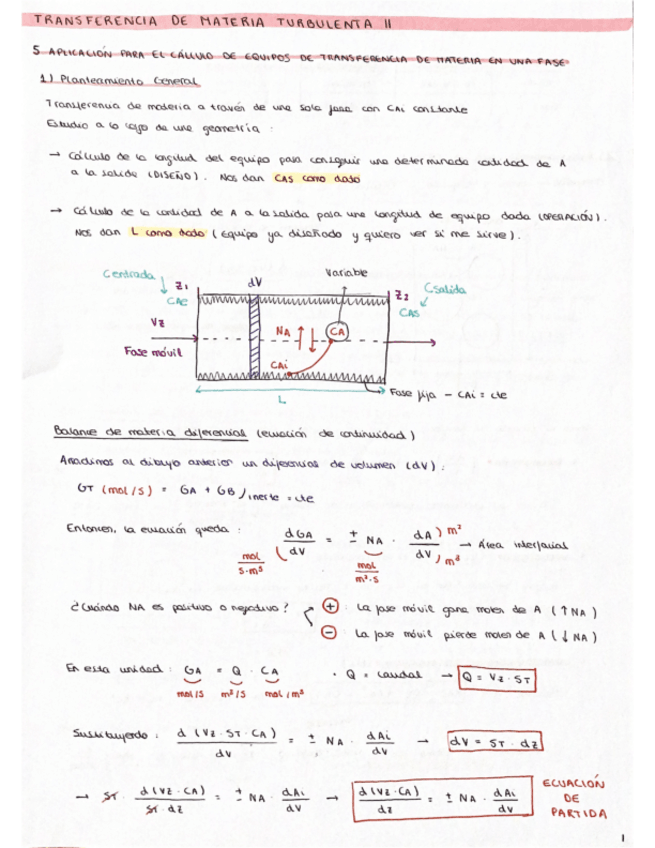 TRANSFERENCIA DE MATERIA TURBULENTA II
5 APLICACIÓN PARA EL CÁLCULO DE EQUIPOS DE TRANSFERENCIA DE MATERIA EN UNA FASE
1) Planteamiento General
Transferencia de materia a través de una sola fase con CAi constante
Estudio a lo largo de una geometría :
→ Cálculo de la longitud del equipo para conseguir una determinada cantidad de A
a la salida (DISEÑO). Nos dan CAS como dato
→ Cálculo de la cantidad de A a la salida para una longitud de equipo dada (OPERACIÓN).
Nos dan L como dato (Equipo ya diseñado y quiero ver si me sirve).
Centrada
Z1
CAE
dV
Variable
Z2
Csalida
CAS
Vz
Fase móvil
NA
CA
CAi
L
Fase fija - CAi = cte
Balance de materia diferencial (ecuación de continuidad)
Añadimos al dibujo anterior un diferencial de volumen (dV) :
GT (mol/s) = GA + GB / inerte = cte
Entonces, la ecuación queda :
dGA / dV = ± NA · dA / dV → Área interfacial
m²
m³
mol / s·m³
mol / m²·s
¿Cuándo NA es positivo o negativo?
+ : La fase móvil gana moles de A (↑ NA)
- : La fase móvil pierde moles de A (↓ NA)
En esta unidad : GA = Q · CA
mol/s m³/s mol/m³
· Q = caudal → Q = Vz · ST
Sustituyendo : d (Vz · ST · CA) / dV = ± NA · dAi / dV → dV = ST · dz
→ ST · d (Vz · CA) / ST · dz = ± NA · dAi / dV → d (Vz · CA) / dz = ± NA · dAi / dV
ECUACIÓN
DE
PARTIDA
1